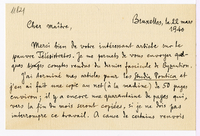 1124
Bruxelles, le 22 mars
1940
Cher maître,
Merci bien de votre intéressant article sur le
pauvre Télésistratos. Je me permets de vous envoyer quel-
ques longs comptes rendus du dernier fascicule de Byzantion.
J'ai terminé mes articles pour les Studia Pontica et
j'en ai fait une copie au net (à la machine) de 50 pages
environ; il y a encore une quarantaine de pages qui,
vers la fin du mois seront copiées, si je ne dois pas
interrompre ce travail. A cause de certains renvois